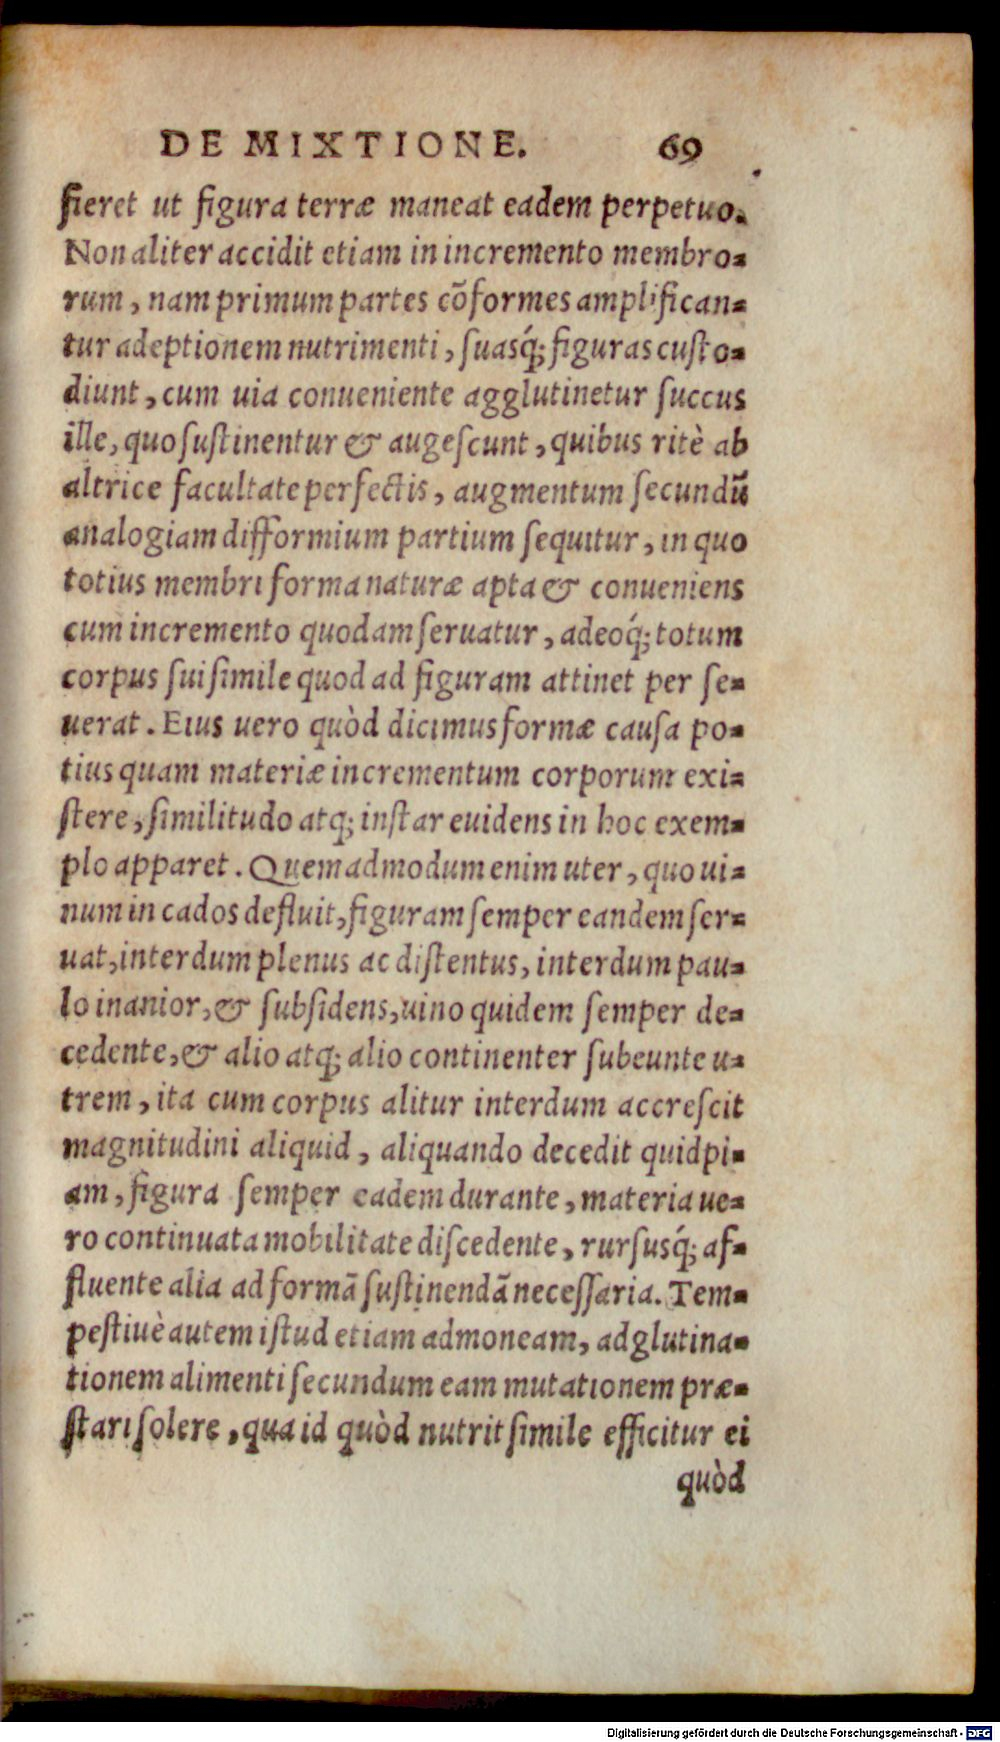 DE MIXTIONE. 69
fieret ut figura terræ maneat eadem perpetuo.
Non aliter accidit etiam in incremento membro-
rum, nam primum partes cõformes amplifican-
tur adeptionem nutrimenti, ſuasq́; figuras cuſto-
diunt, cum uia conueniente agglutinetur ſuccus
ille, quo ſuſtinentur & augeſcunt, quibus ritè ab
altrice facultate perfectis, augmentum ſecundũ
analogiam difformium partium ſequitur, in quo
totius membri forma naturæ apta & conueniens
cum incremento quodam ſeruatur, adeoq́; totum
corpus ſui ſimile quod ad figuram attinet per ſe-
uerat. Eius uero quòd dicimus formæ cauſa po-
tius quam materiæ incrementum corporum exi-
ſtere, ſimilitudo atq; inſtar euidens in hoc exem-
plo apparet. Quemadmodum enim uter, quo ui-
num in cados defluit, figuram ſemper eandem ſer-
uat, interdum plenus ac diſtentus, interdum pau-
lo inanior, & ſubſidens, uino quidem ſemper de-
cedente, & alio atq; alio continenter ſubeunte u-
trem, ita cum corpus alitur interdum accreſcit
magnitudini aliquid, aliquando decedit quidpi-
am, figura ſemper eadem durante, materia ue-
ro continuata mobilitate diſcedente, rurſusq́; af-
fluente alia ad formã ſuſtinendã neceſſaria. Tem-
peſtiuè autem iſtud etiam admoneam, adglutina-
tionem alimenti ſecundum eam mutationem præ-
ſtari ſolere, qua id quòd nutrit ſimile efficitur ei
quòd
Digitalisierung gefördert durch die Deutsche Forschungsgemeinschaft - DFG